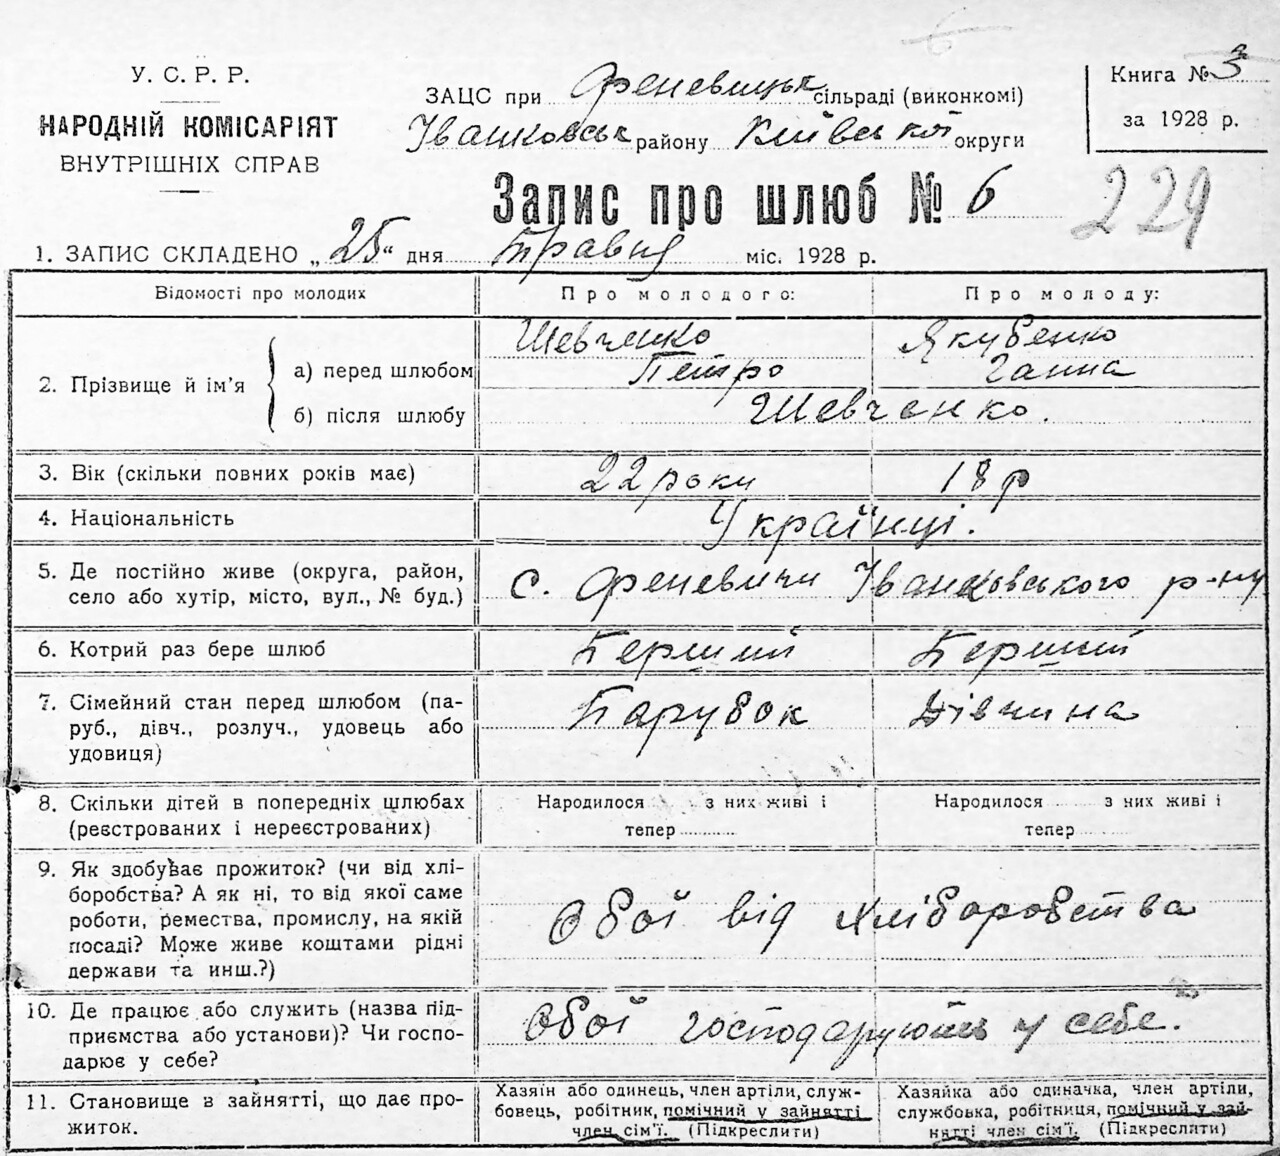 У. С. Р. Р.
НАРОДНІЙ КОМІСАРІЯТ
ВНУТРІШНІХ СПРАВ
ЗАЦС при Феневицьк сільраді (виконкомі)
Іванковськ району Київської округи
Книга № 3
за 1928 р.
Запис про шлюб № 6
229
1. ЗАПИС СКЛАДЕНО „25“ дня Травня міс. 1928 р.
Відомості про молодих Про молодого: Про молоду:
2. Прізвище й ім’я
а) перед шлюбом Шевченко Петро Якубенко Ганна
б) після шлюбу Шевченко.
3. Вік (скільки повних років має) 22 роки 18 р
4. Національність Українці.
5. Де постійно живе (округа, район,
село або хутір, місто, вул., № буд.) с. Феневичи Іванковського р-ну
6. Котрий раз бере шлюб Перший Перший
7. Сімейний стан перед шлюбом (па-
руб., дівч., розлуч., удовець або
удовиця) Парубок Дівчина
8. Скільки дітей в попередніх шлюбах
(реєстрованих і нереєстрованих)
Народилося з них живі і
тепер
Народилося з них живі і
тепер
9. Як здобуває прожиток? (чи від хлі-
боробства? А як ні, то від якої саме
роботи, ремества, промислу, на якій
посаді? Може живе коштами рідні
держави та инш.?)
Обої від хліборобства
10. Де працює або служить (назва під-
приємства або установи)? Чи госпо-
дарює у себе?
Обої господарують у себе.
11. Становище в зайнятті, що дає про-
житок.
Хазяїн або одинець, член артіли, служ-
бовець, робітник, помічний у зайнятті
член сім’ї. (Підкреслити)
Хазяйка або одиначка, член артіли,
службовка, робітниця, помічний у зай-
нятті член сім’ї. (Підкреслити)